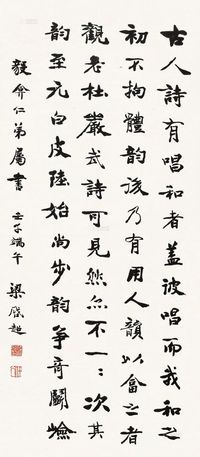 古人詩有唱和者蓋彼唱而我和之
初不拘體韻後乃有用人韻以畣之者
觀老杜嚴武詩可見然亦不一一次其
韻至元白皮陸始尚步韻爭奇鬭險
毅弇仁弟屬書 壬子端午 梁啟超